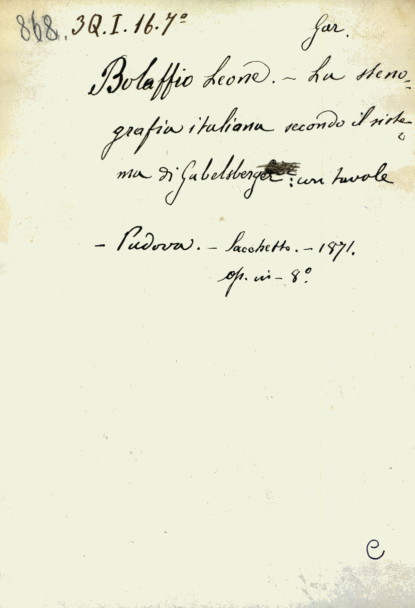 868. 3Q.I.16.7º
Gar.
Bolaffio Leone. – La steno-
grafia italiana secondo il siste-
ma di Gabelsberger: con tavole
– Padova. – Sacchetto. – 1871.
op. in – 8º.
C